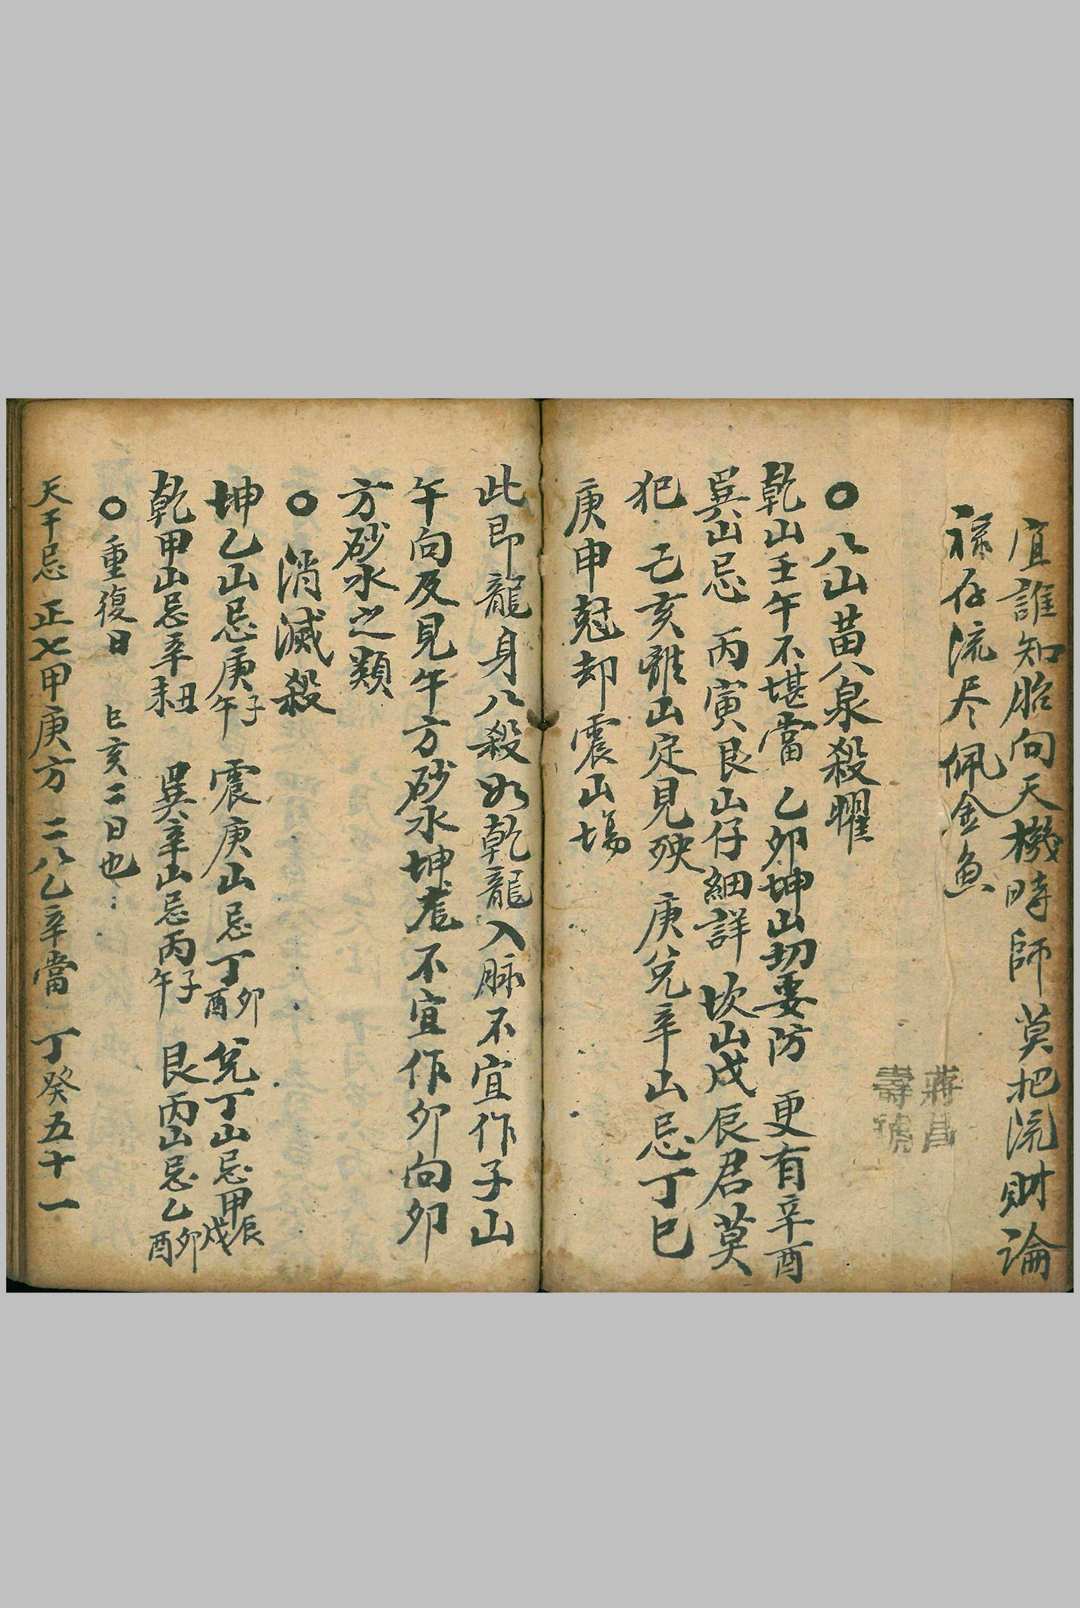 宜誰知胎向天機時師莫把流財論
祿存流尽佩金魚
蔣昌
壽號
○八山黃泉殺曜
乾山壬午不堪當 乙卯坤山切要防 更有辛酉
巽山忌 丙寅艮山仔細詳 坎山戊辰君莫
犯 乙亥離山定見殃 庚兌辛山忌丁巳
庚申尅却震山塲
此即龍身八殺如乾龍入脉不宜作子山
午向及見午方砂水坤龍不宜作卯向卯
方砂水之類
○ 消滅殺
坤乙山忌庚子午 震庚山忌丁卯酉 兌丁山忌甲辰戌
乾甲山忌辛 巽辛山忌丙子午 艮丙山忌乙卯酉
○重復日 巳亥二日也
天干忌 正七甲庚方 二八乙辛當 丁癸五十一